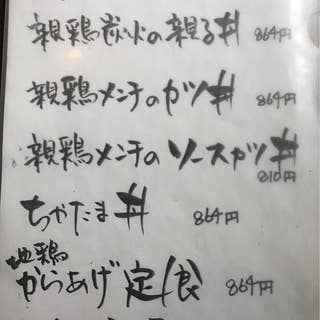 親鶏炭火の親子丼 864円
親鶏メンチのカツ丼 864円
親鶏メンチのソースカツ丼 810円
ちゃたま丼 864円
地鶏からあげ定食 864円